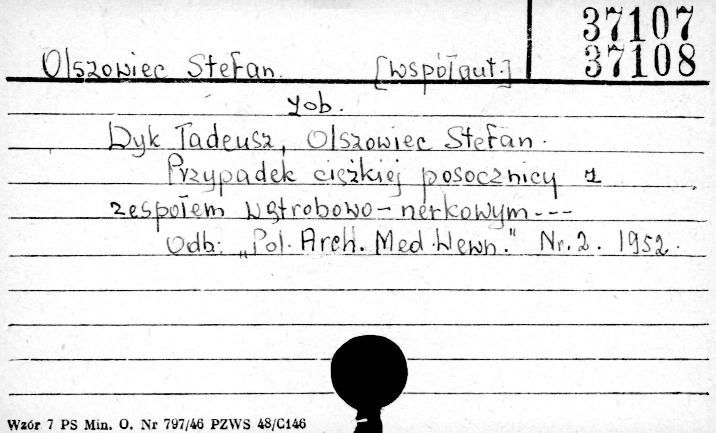 37107
37108
Olszowiec Stefan. [współaut.]
zob.
Dyk Tadeusz, Olszowiec Stefan.
Przypadek ciężkiej posocznicy z
zespołem wątrobowo-nerkowym---
Odb: „Pol. Arch. Med. Wewn." Nr. 2. 1952.
Wzór 7 PS Min. O. Nr 797/46 PZWS 48/C146